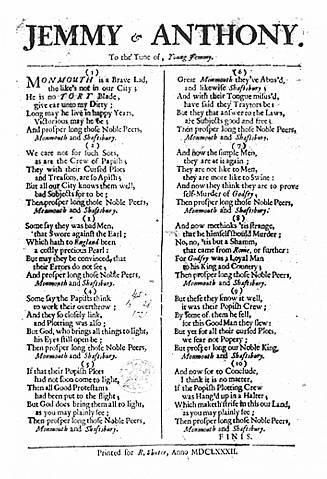 JEMMY & ANTHONY.
To the Tune of, Young Jemmy.
(1)
MONMOUTH is a Brave Lad,
the like's not in our City;
He is no TORY Blade,
give ear unto my Ditty;
Long may he live in happy Years,
Victorious may he be;
And prosper long those Noble Peers,
Monmouth and Shaftsbury.
(2)
We care not for such Sots,
as are the Crew of Papists;
They with their Cursed Plots
and Treasons, are so Apists;
But all our City knows them well,
bad Subjects for to be;
Then prosper long those Noble Peers,
Monmouth and Shaftsbury.
(3)
Some say they was bad Men,
that Swore against the Earl;
Which hath to England been
a costly precious Pearl:
But may they be convinced, that
their Errors do not see;
And prosper long those Noble Peers,
Monmouth and Shaftsbury.
(4)
Some say the Papists think
to work their overthrow;
And they so closely link,
and Plotting was also;
But God, who brings all things to light,
his Eyes still open be;
Then prosper long those Noble Peers,
Monmouth and Shaftsbury.
(5)
If that their Popish Plots
had not soon come to light,
Then all Good Protestants
had been put to the flight;
But God does bring them all to light,
as you may plainly see;
Then prosper long those Noble Peers,
Monmouth and Shaftsbury.
(6)
Great Monmouth they've Abus'd,
and likewise Shaftsbury;
And with their Tongue misus'd,
have said they Traytors be:
But they that answer to the Laws,
are Subjects good and free;
Then prosper long those Noble Peers,
Monmouth and Shaftsbury.
(7)
And now the simple Men,
they are at it again;
They are not like to Men,
they are more like to Swine:
And now they think they are to prove
self-Murder of Godfry;
Then prosper long those Noble Peers,
Monmouth and Shaftsbury.
(8)
And now methinks 'tis strange,
that he himself should Murder;
No, no, 'tis but a Shamm,
that came from Rome, or further:
For Godfry was a Loyal Man
to his King and Country;
Then prosper long those Noble Peers,
Monmouth and Shaftsbury.
(9)
But these they know it well,
it was their Popish Crew;
By some of them he fell,
for this Good Man they slew:
But yet for all their cursed Plots,
we fear not Popery;
But prosper long our Noble King,
Monmouth and Shaftsbury.
(10)
And now for to Conclude,
I think it is no matter,
If the Popish Plotting Crew
was Hang'd up in a Halter;
Which maketh strife in this our Land,
as you may plainly see;
Then prosper long those Noble Peers,
Monmouth and Shaftsbury.
FINIS.
Printed for R. Shuter, Anno MDCLXXXII.